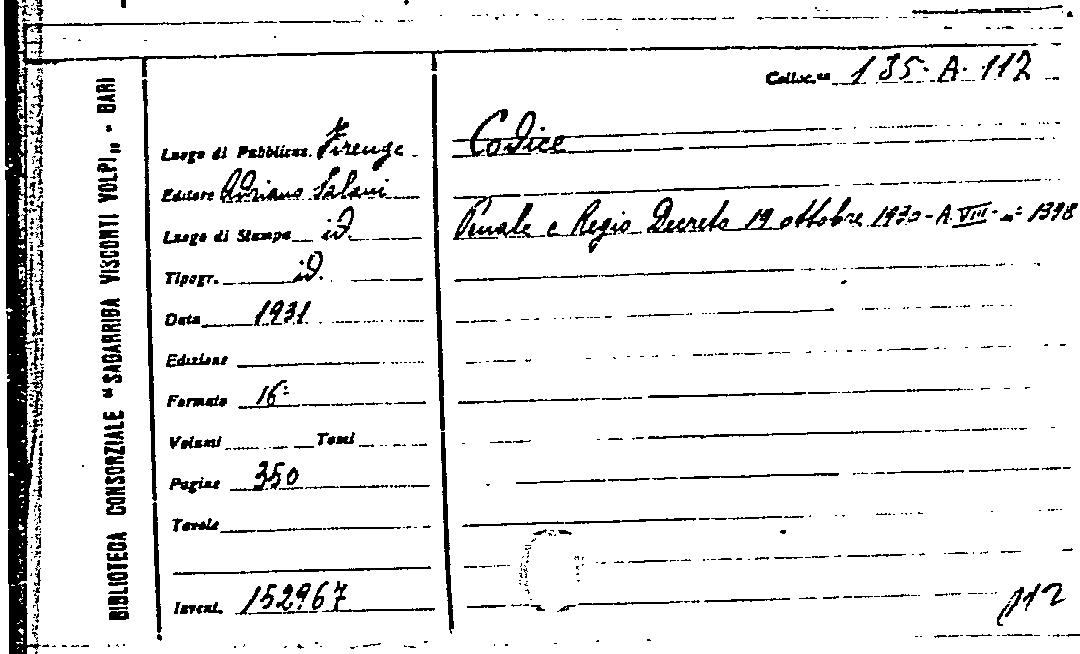 BIBLIOTECA CONSORZIALE "SAGARRIGA VISCONTI VOLPI„ - BARI
Colloc.ne 135-A-112
Luogo di Pubblicaz. Firenze
Editore Adriano Salani
Luogo di Stampa id.
Tipogr. id.
Data 1931
Edizione
Formato 16°
Volumi Tomi
Pagine 350
Tavole
Invent. 152967
Codice
Penale e Regio Decreto 19 ottobre 1930-A. VIII - n° 1398
112